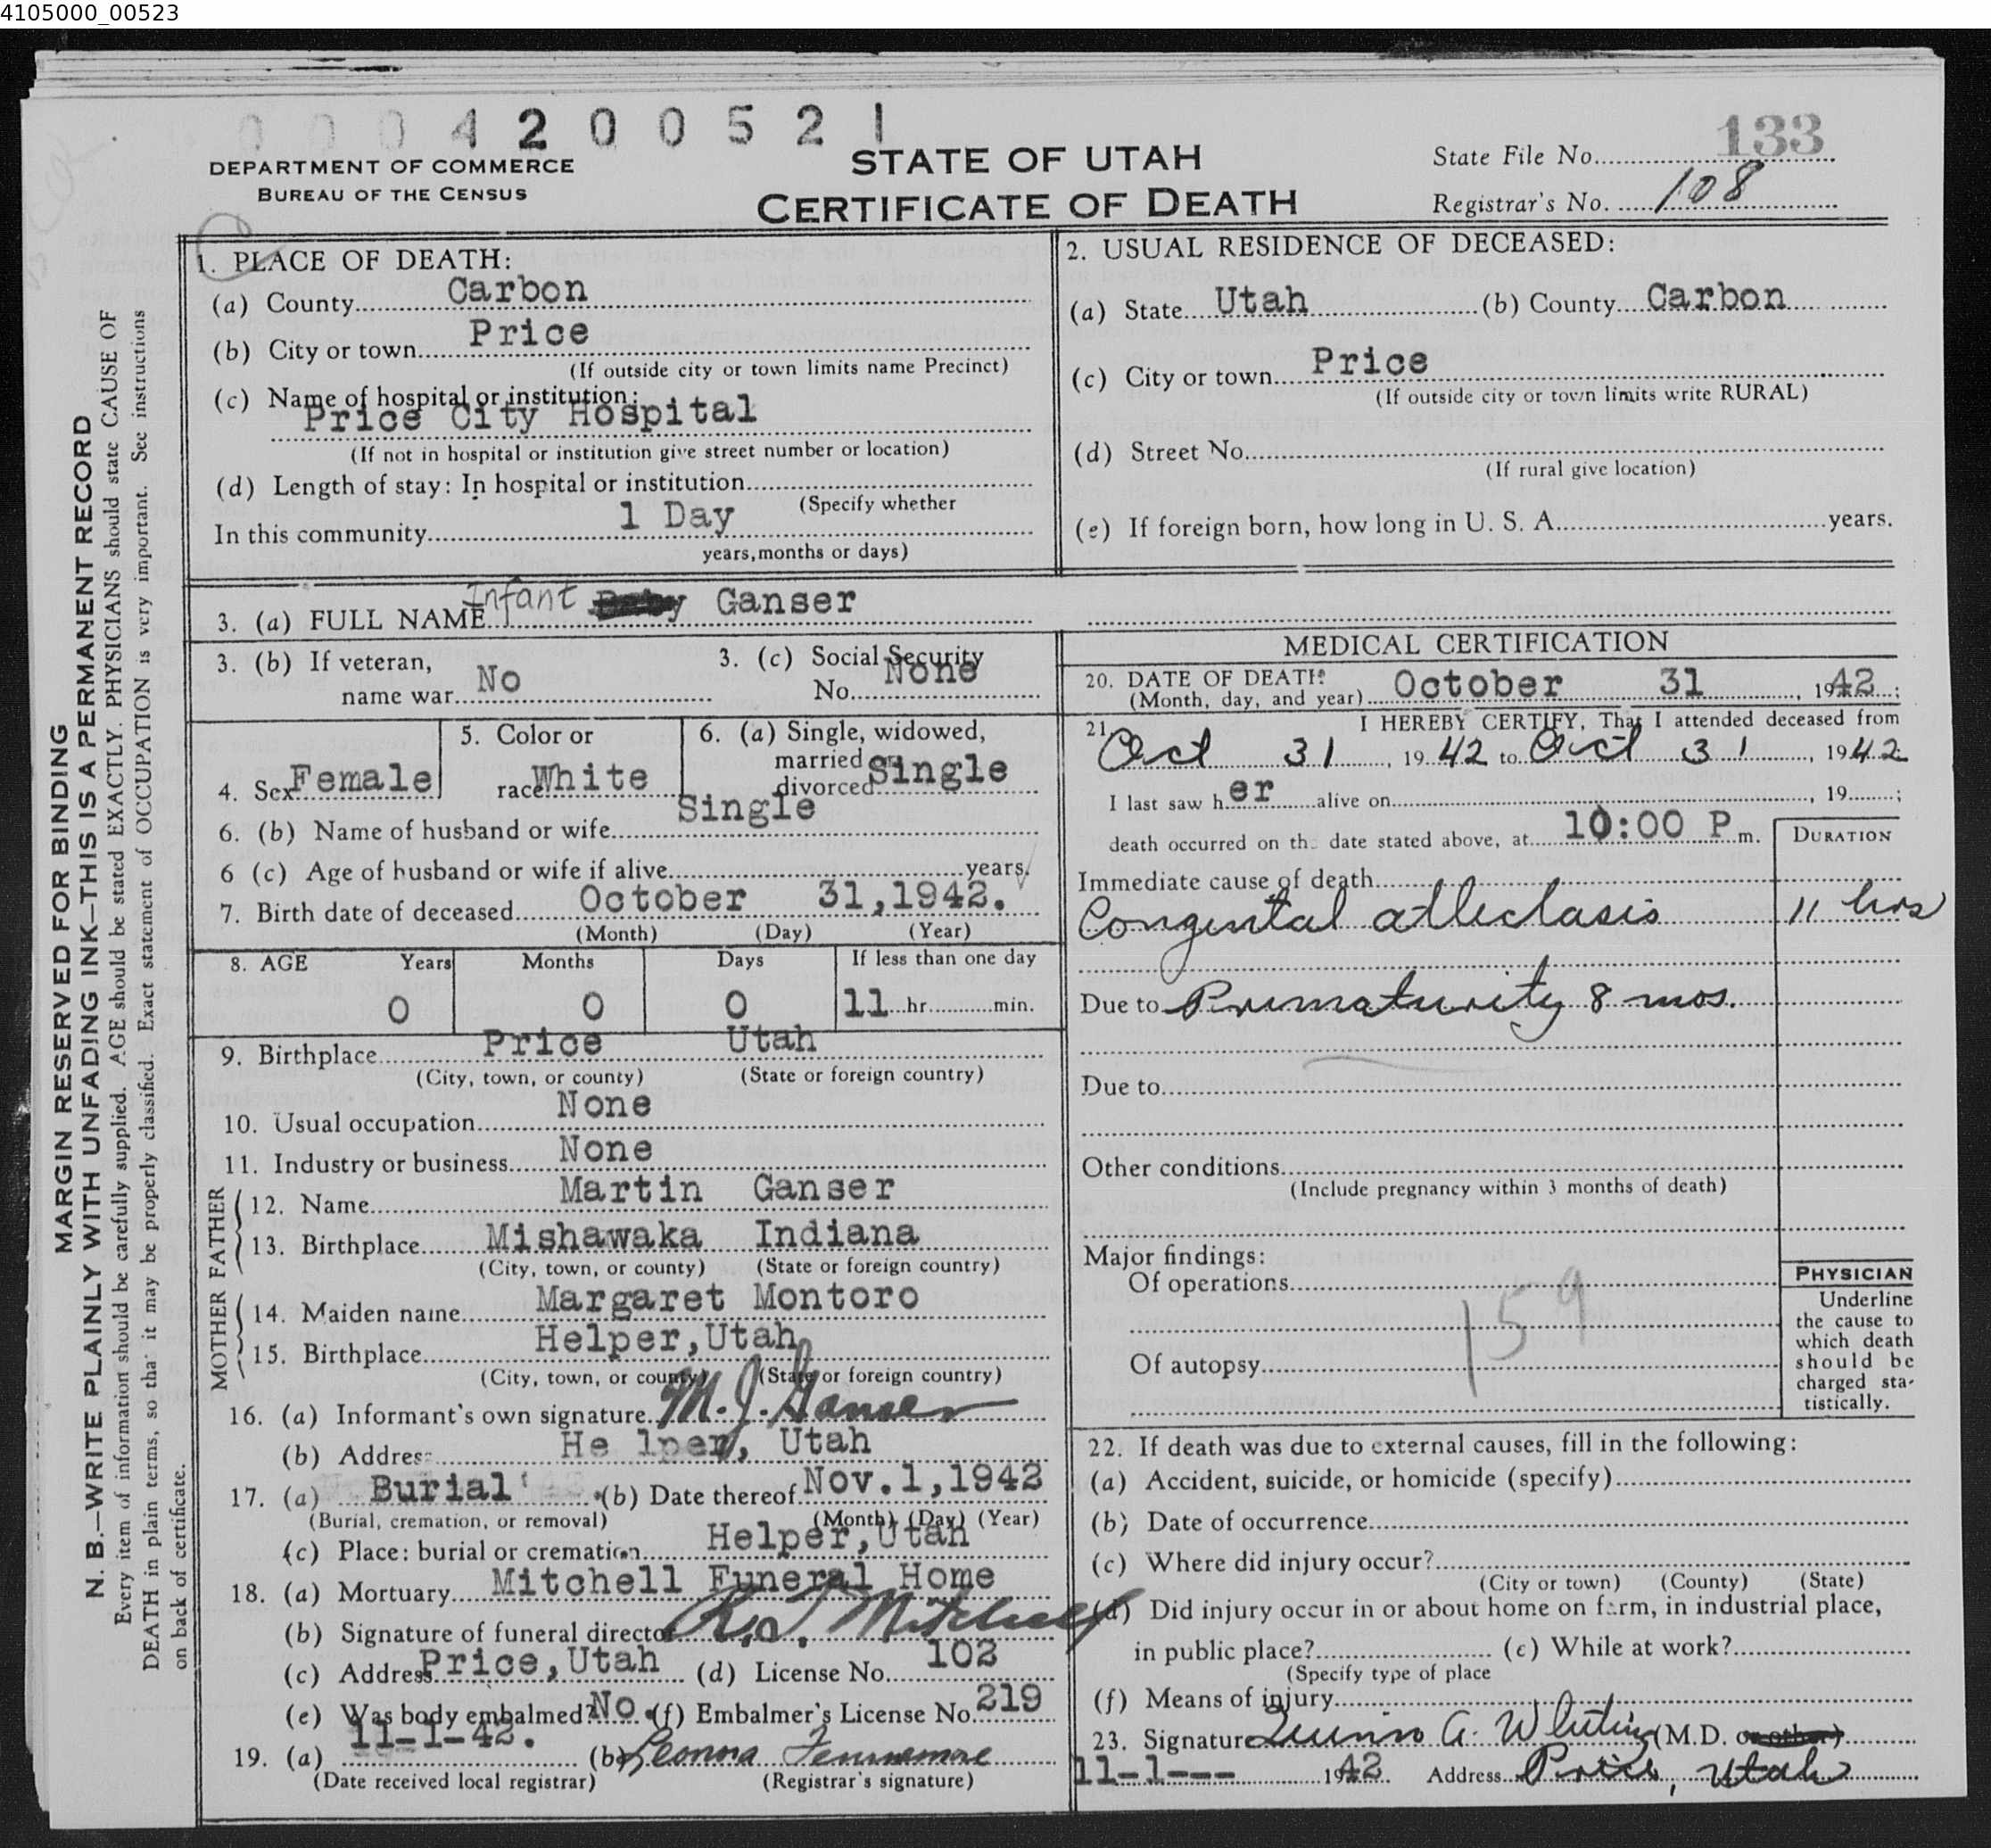 4105000_00523
0004200521
DEPARTMENT OF COMMERCE
BUREAU OF THE CENSUS
STATE OF UTAH
CERTIFICATE OF DEATH
State File No. 133
Registrar's No. 108
MARGIN RESERVED FOR BINDING
N. B.—WRITE PLAINLY WITH UNFADING INK—THIS IS A PERMANENT RECORD
Every item of information should be carefully supplied. AGE should be stated EXACTLY. PHYSICIANS should state CAUSE OF
DEATH in plain terms, so that it may be properly classified. Exact statement of OCCUPATION is very important. See instructions
on back of certificate.
1. PLACE OF DEATH:
(a) County Carbon
(b) City or town Price
(If outside city or town limits name Precinct)
(c) Name of hospital or institution:
Price City Hospital
(If not in hospital or institution give street number or location)
(d) Length of stay: In hospital or institution
(Specify whether
In this community 1 Day
years, months or days)
2. USUAL RESIDENCE OF DECEASED:
(a) State Utah (b) County Carbon
(c) City or town Price
(If outside city or town limits write RURAL)
(d) Street No.
(If rural give location)
(e) If foreign born, how long in U. S. A. years.
3. (a) FULL NAME Infant Baby Ganser
3. (b) If veteran, name war No
3. (c) Social Security No. None
4. Sex Female
5. Color or race White
6. (a) Single, widowed, married or divorced Single
6. (b) Name of husband or wife Single
6 (c) Age of husband or wife if alive years.
7. Birth date of deceased October 31,1942.
(Month) (Day) (Year)
8. AGE Years Months Days If less than one day
0 0 0 11 hr. min.
9. Birthplace Price Utah
(City, town, or county) (State or foreign country)
10. Usual occupation None
11. Industry or business None
FATHER
12. Name Martin Ganser
13. Birthplace Mishawaka Indiana
(City, town, or county) (State or foreign country)
MOTHER
14. Maiden name Margaret Montoro
15. Birthplace Helper,Utah
(City, town, or county) (State or foreign country)
16. (a) Informant's own signature M. J. Ganser
(b) Address He lper, Utah
17. (a) Burial (b) Date thereof Nov.1,1942
(Burial, cremation, or removal) (Month) (Day) (Year)
(c) Place: burial or cremation Helper,Utah
18. (a) Mortuary Mitchell Funeral Home
(b) Signature of funeral director Mitchell
(c) Address Price,Utah (d) License No. 102
(e) Was body embalmed? No. (f) Embalmer's License No. 219
19. (a) 11-1-42. (b) Leonna Fennemore
(Date received local registrar) (Registrar's signature)
MEDICAL CERTIFICATION
20. DATE OF DEATH
(Month, day, and year) October 31, 1942;
21. I HEREBY CERTIFY, That I attended deceased from
Oct 31, 19 42 to Oct 31, 19 42
I last saw her alive on , 19 ;
death occurred on the date stated above, at 10:00 P m.
DURATION
Immediate cause of death
Congenital atlectasis 11 hrs
Due to Prematurity 8 mos.
Due to
Other conditions
(Include pregnancy within 3 months of death)
Major findings:
Of operations
159
Of autopsy
PHYSICIAN
Underline
the cause to
which death
should be
charged sta-
tistically.
22. If death was due to external causes, fill in the following:
(a) Accident, suicide, or homicide (specify)
(b) Date of occurrence
(c) Where did injury occur?
(City or town) (County) (State)
(d) Did injury occur in or about home on farm, in industrial place,
in public place? (e) While at work?
(Specify type of place
(f) Means of injury
23. Signature Quinn A. Whiting (M.D. or other)
11-1--- 1942 Address Price, Utah